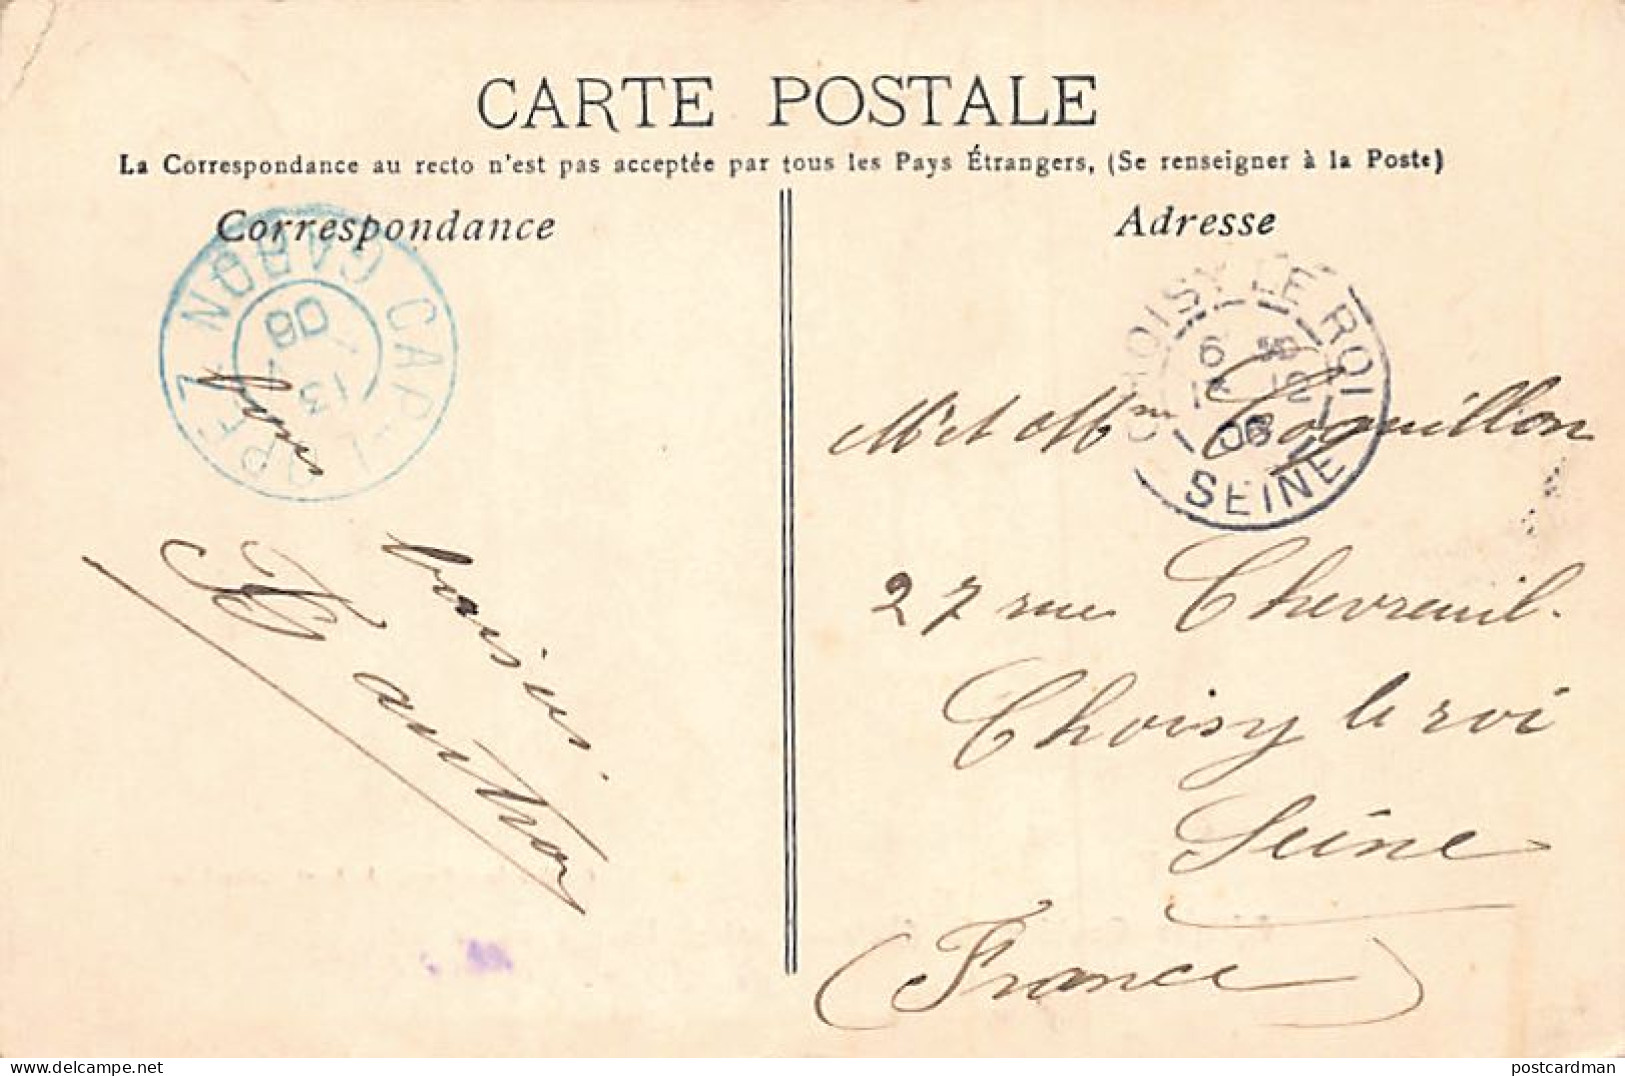 CARTE POSTALE
La Correspondance au recto n'est pas acceptée par tous les Pays Étrangers, (Se renseigner à la Poste)
Correspondance
Adresse
CAP-LOPEZ
GABON
13
08
CHOISY LE ROI
6
12
08
SEINE
baisers.
Mr et Mme Coquillon
27 rue Chevreuil.
Choisy le roi
Seine
(France)
postcardman